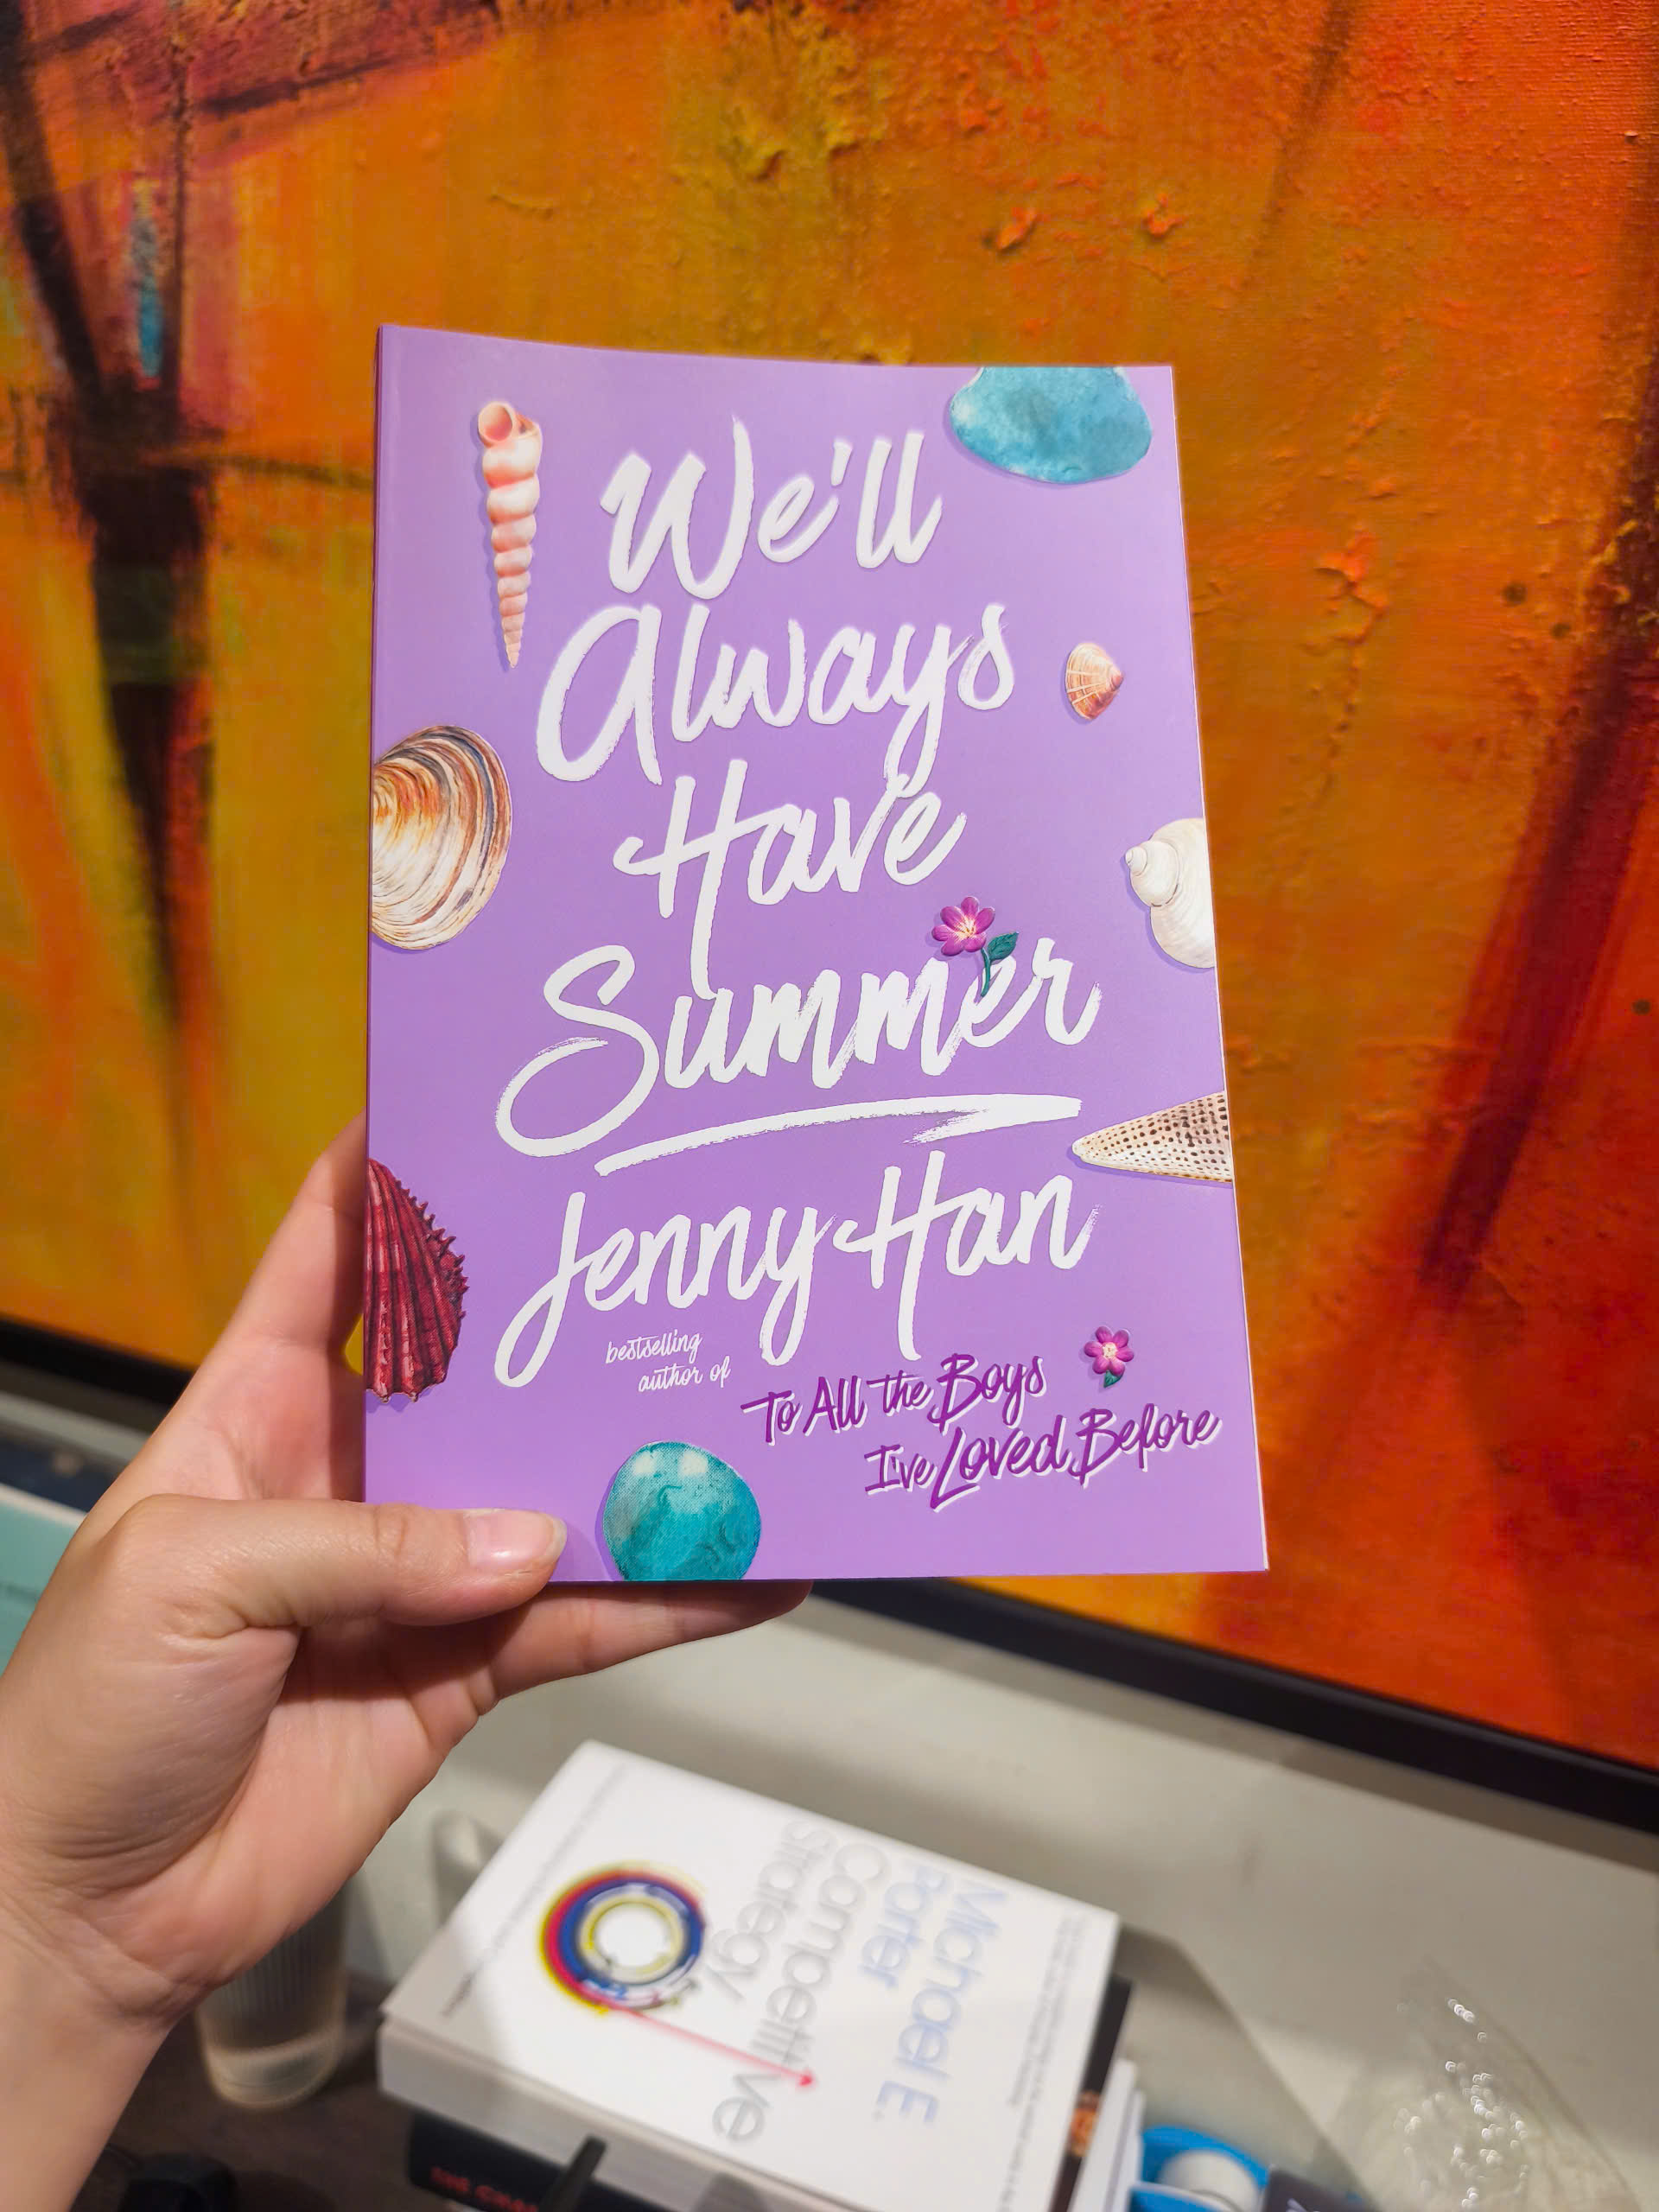 We'll
Always
Have
Summer
Jenny Han
bestselling
author of
To All the Boys
I've Loved Before
Michael E.
Porter
Competitive
Strategy